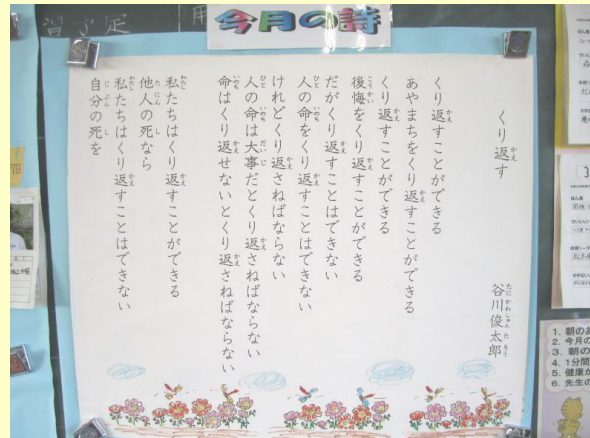 今月の詩
くり返す
谷川俊太郎
くり返すことができる
あやまちをくり返すことができる
くり返すことができる
後悔をくり返すことができる
だがくり返すことはできない
人の命をくり返すことはできない
けれどくり返さねばならない
人の命は大事だとくり返さねばならない
命はくり返せないとくり返さねばならない
私たちはくり返すことができる
他人の死なら
私たちはくり返すことはできない
自分の死を